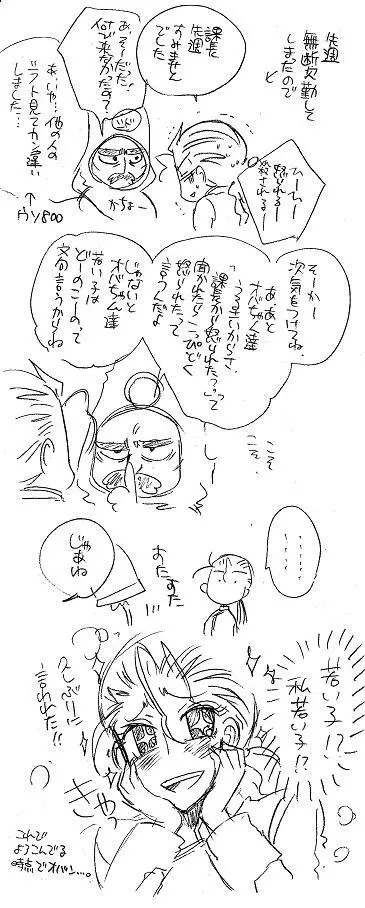 先週
無断欠勤して
しまたので
と
課長
先週
すみませ
でした
あ、そーだった!
何で来なかったの?
いん
かちょー
あ、いや…他の人の
シフト見てカン違い
しました…
↑
ウソ800
ひーー
怒られるー
殺されるー
そーかー
次気をつけてね。
あ、あと
オバちゃん達
うるさいからさ、
「課長から怒られた?」って
聞かれたら「こっぴどく
怒られた」って
言うんだよ
じゃないと
オバちゃん達
若い子は
どーのこーのって
文句言うからね。
こそ
こそ
・・・・・・
じゃあね
すたすた
若い子!?
私若い子!?
久しぶりに
言われた!!
きゃっ
こんで
ようこんでる
時点でオバハン…。